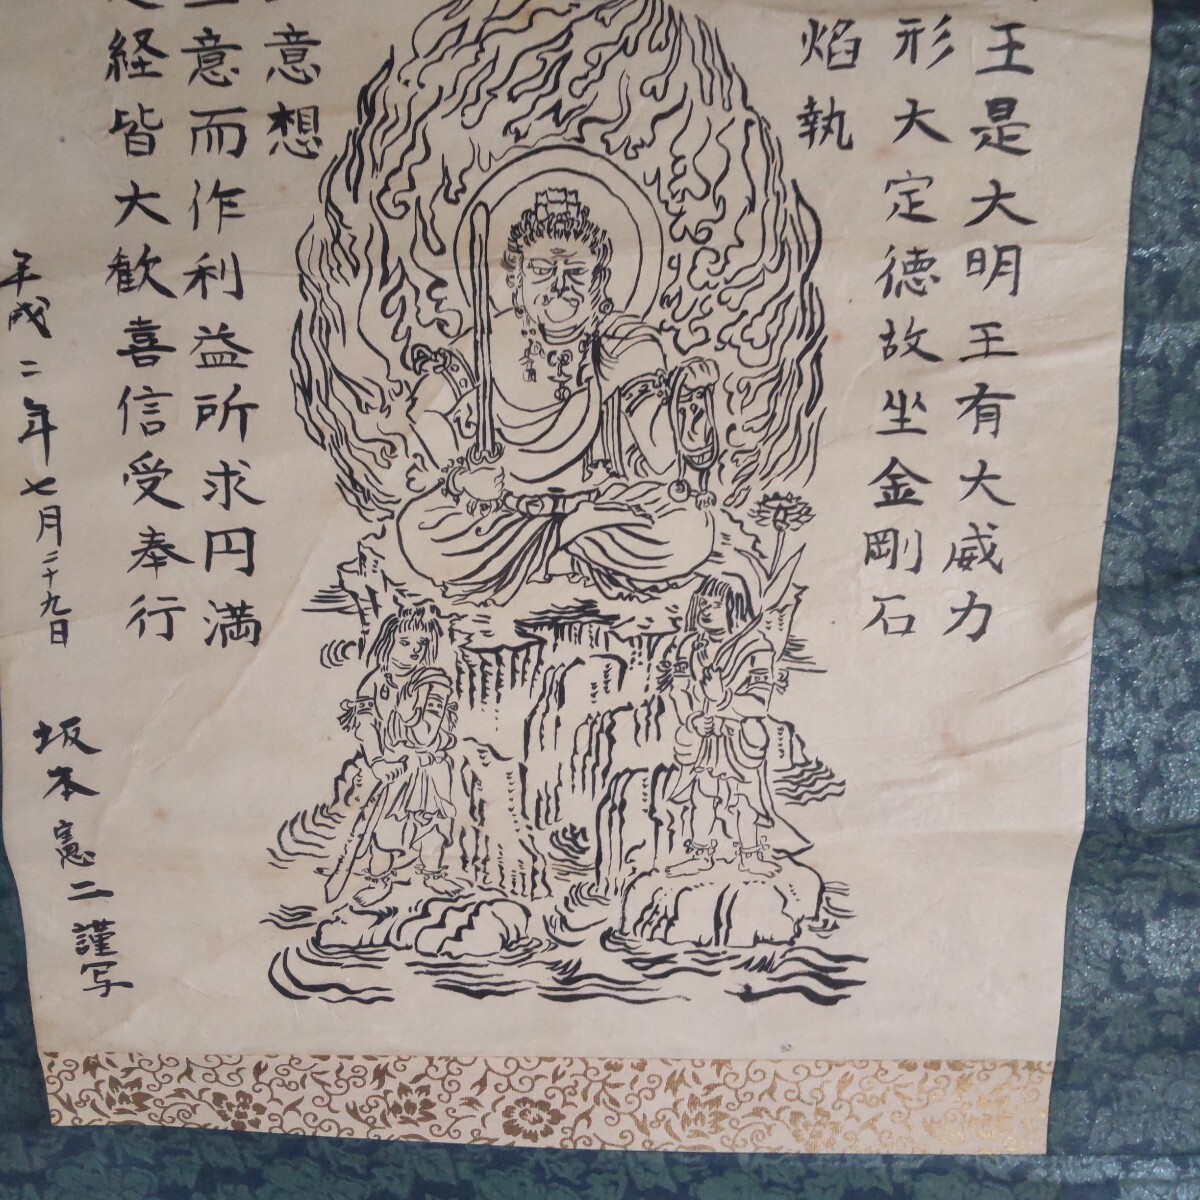 王是大明王有大威力
形大定徳故坐金剛石
焔執
意想
意而作利益所求円満
経皆大歓喜信受奉行
平成二年七月二十九日
坂本憲二謹写